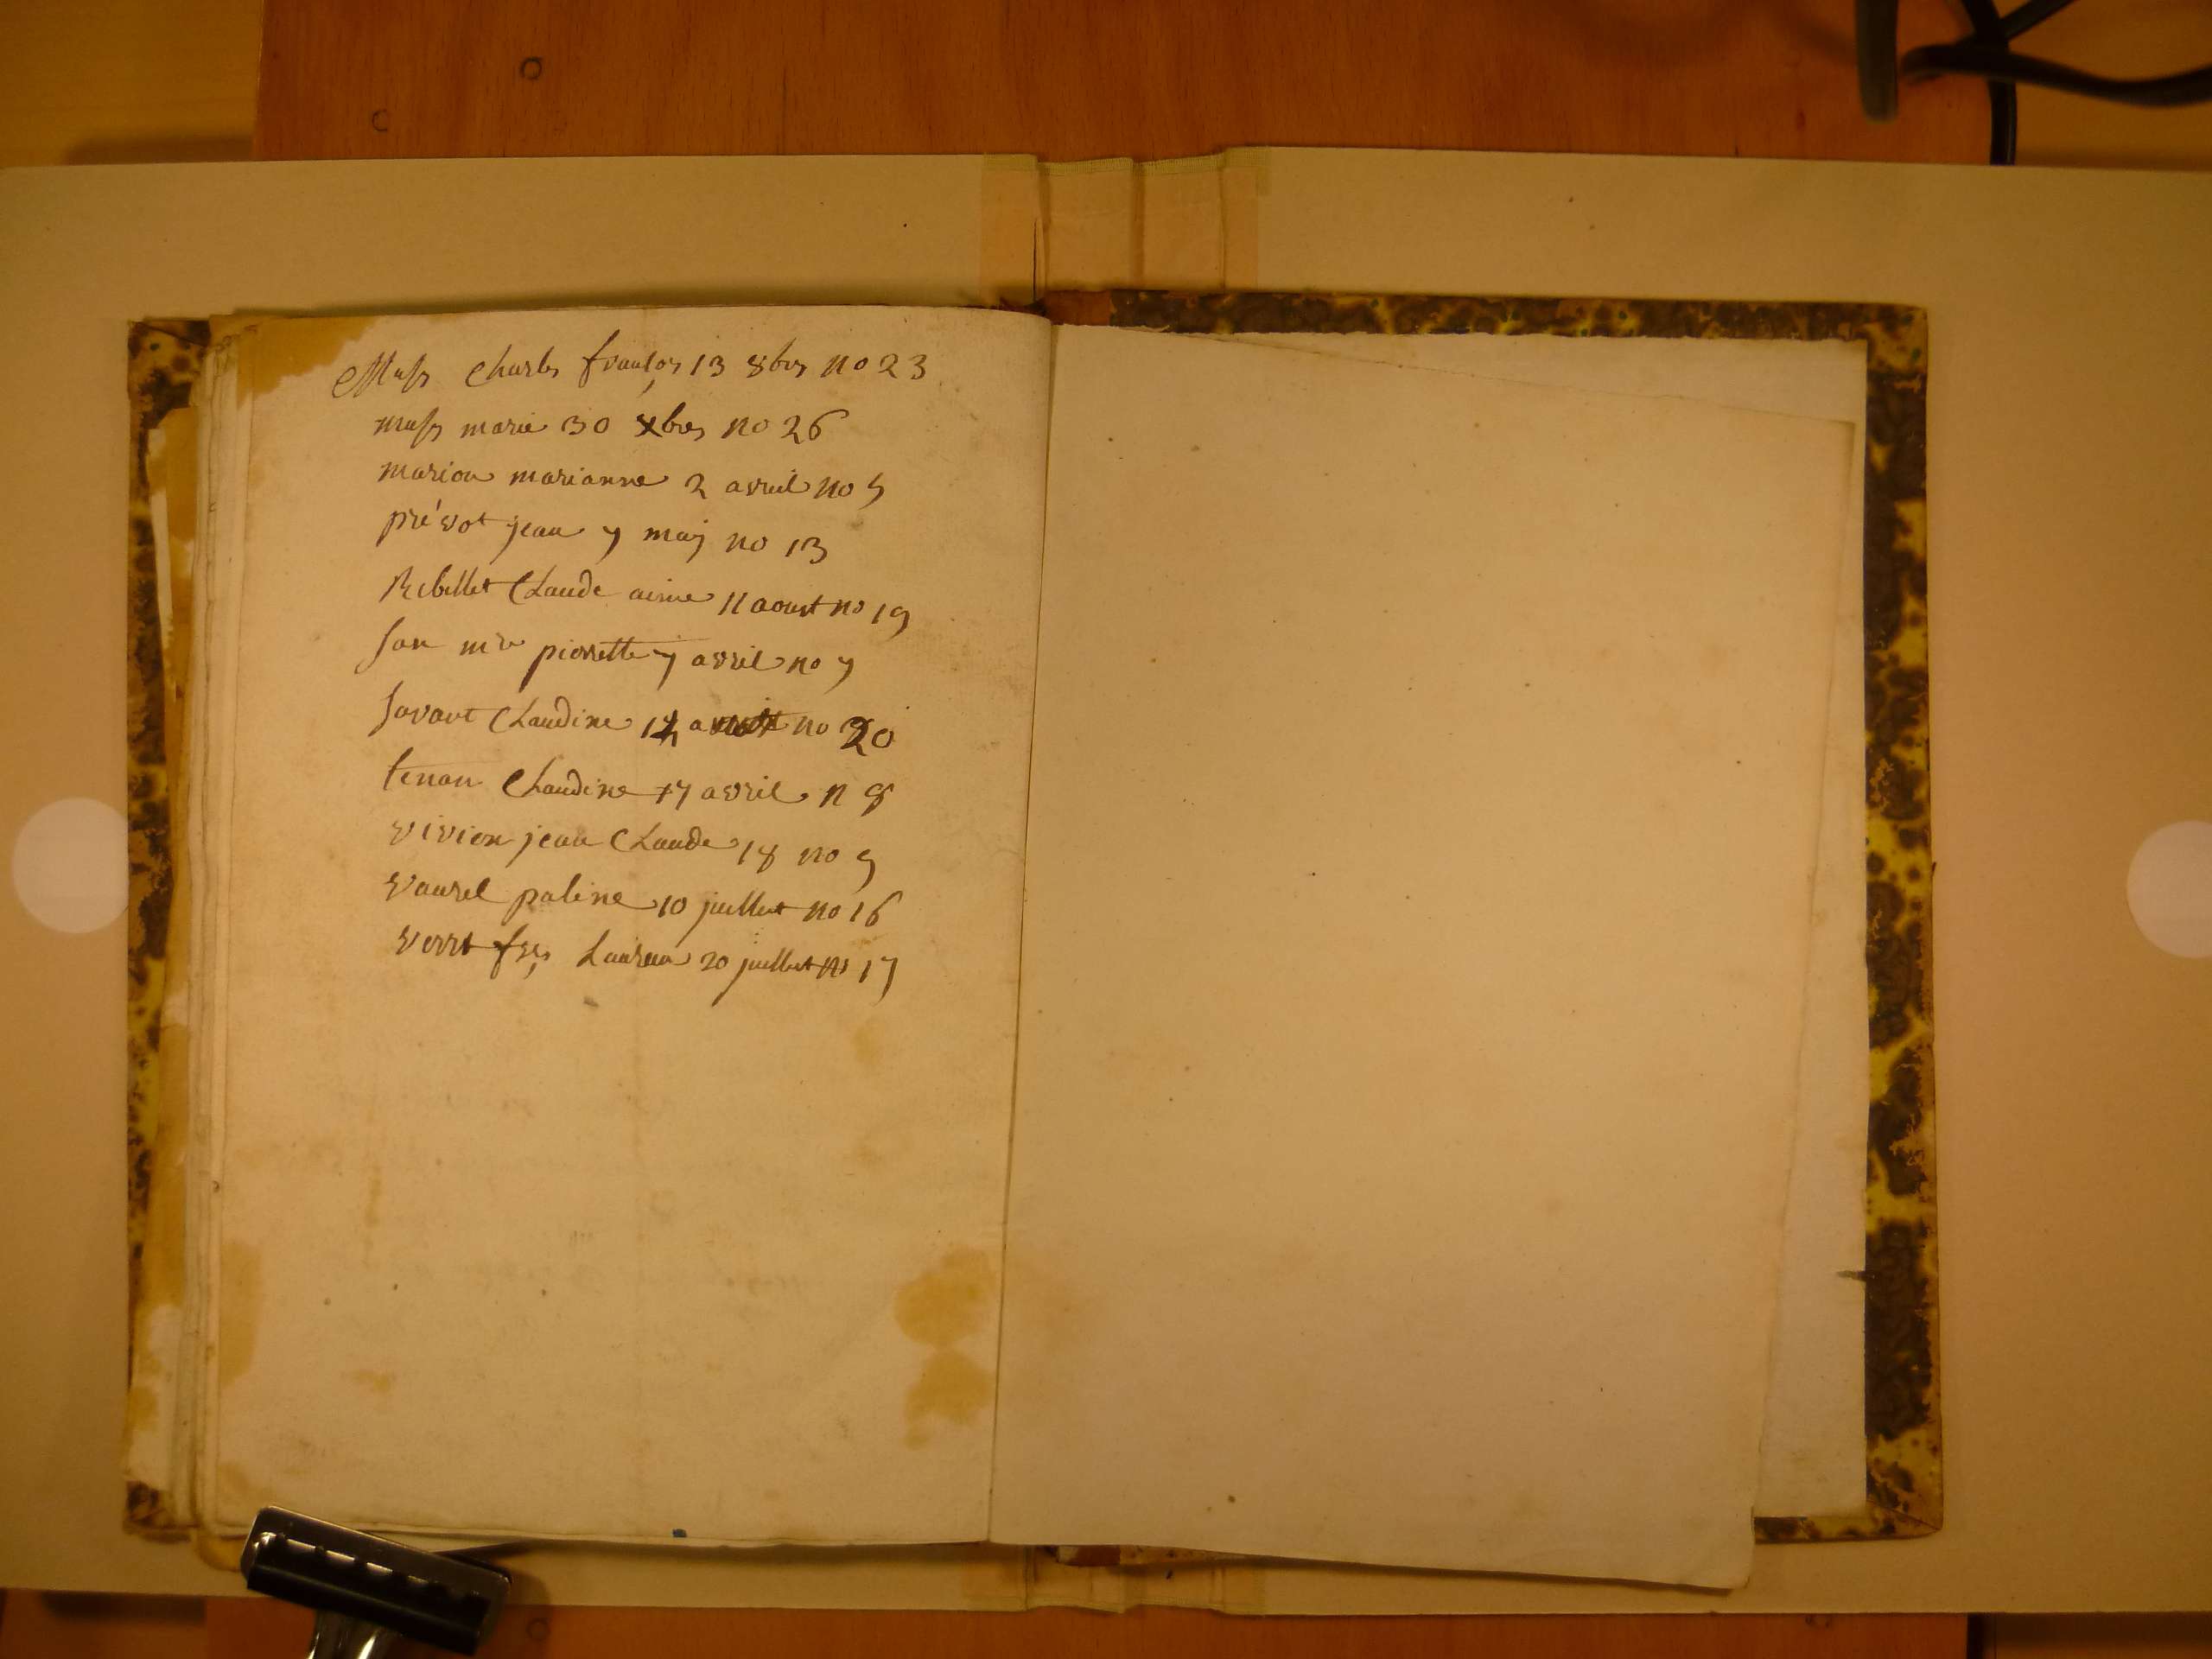 Muss Charles françois 13 8bre no 23
muss marie 30 xbre no 26
marion marianne 2 avril no 5
prévot jean 7 maj no 13
Rebillet Claude aimé 11 aoust no 19
San mie pierrette 7 avril no 7
Savant Claudine no 20
tenan Claudine 17 avril n 8
vivien jean Claude 18 no 9
vaurel paline 10 juillet no 16
verrt frçs 20 juillet no 17